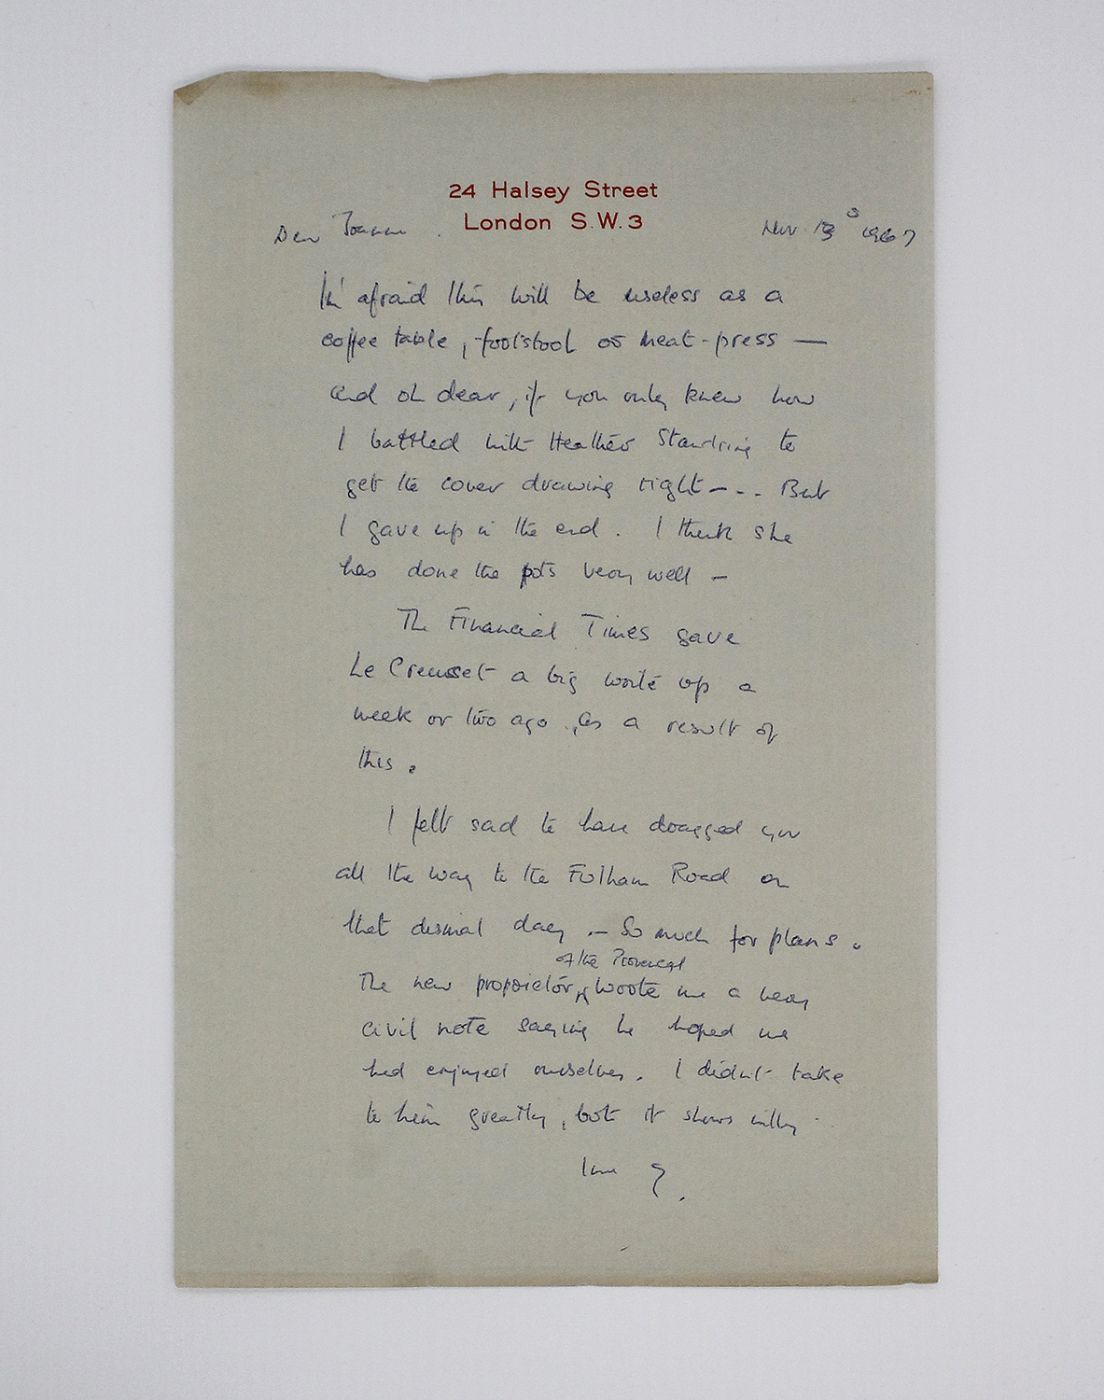 24 Halsey Street
London S.W.3
Dear Joanna Nov 13 1967
I'm afraid this will be useless as a
coffee table, footstool or meat-press —
and oh dear, if you only knew how
I battled with Heather Standring to
get the cover drawing right --- But
I gave up in the end. I think she
has done the pots very well —
The Financial Times gave
Le Creuset a big write up a
week or two ago, as a result of
this.
I felt sad to have dragged you
all the way to the Fulham Road on
that dismal day. — So much for plans.
of the Provencal
The new proprietor, wrote me a very
civil note saying he hoped we
had enjoyed ourselves. I didn't take
to him greatly, but it shows
love